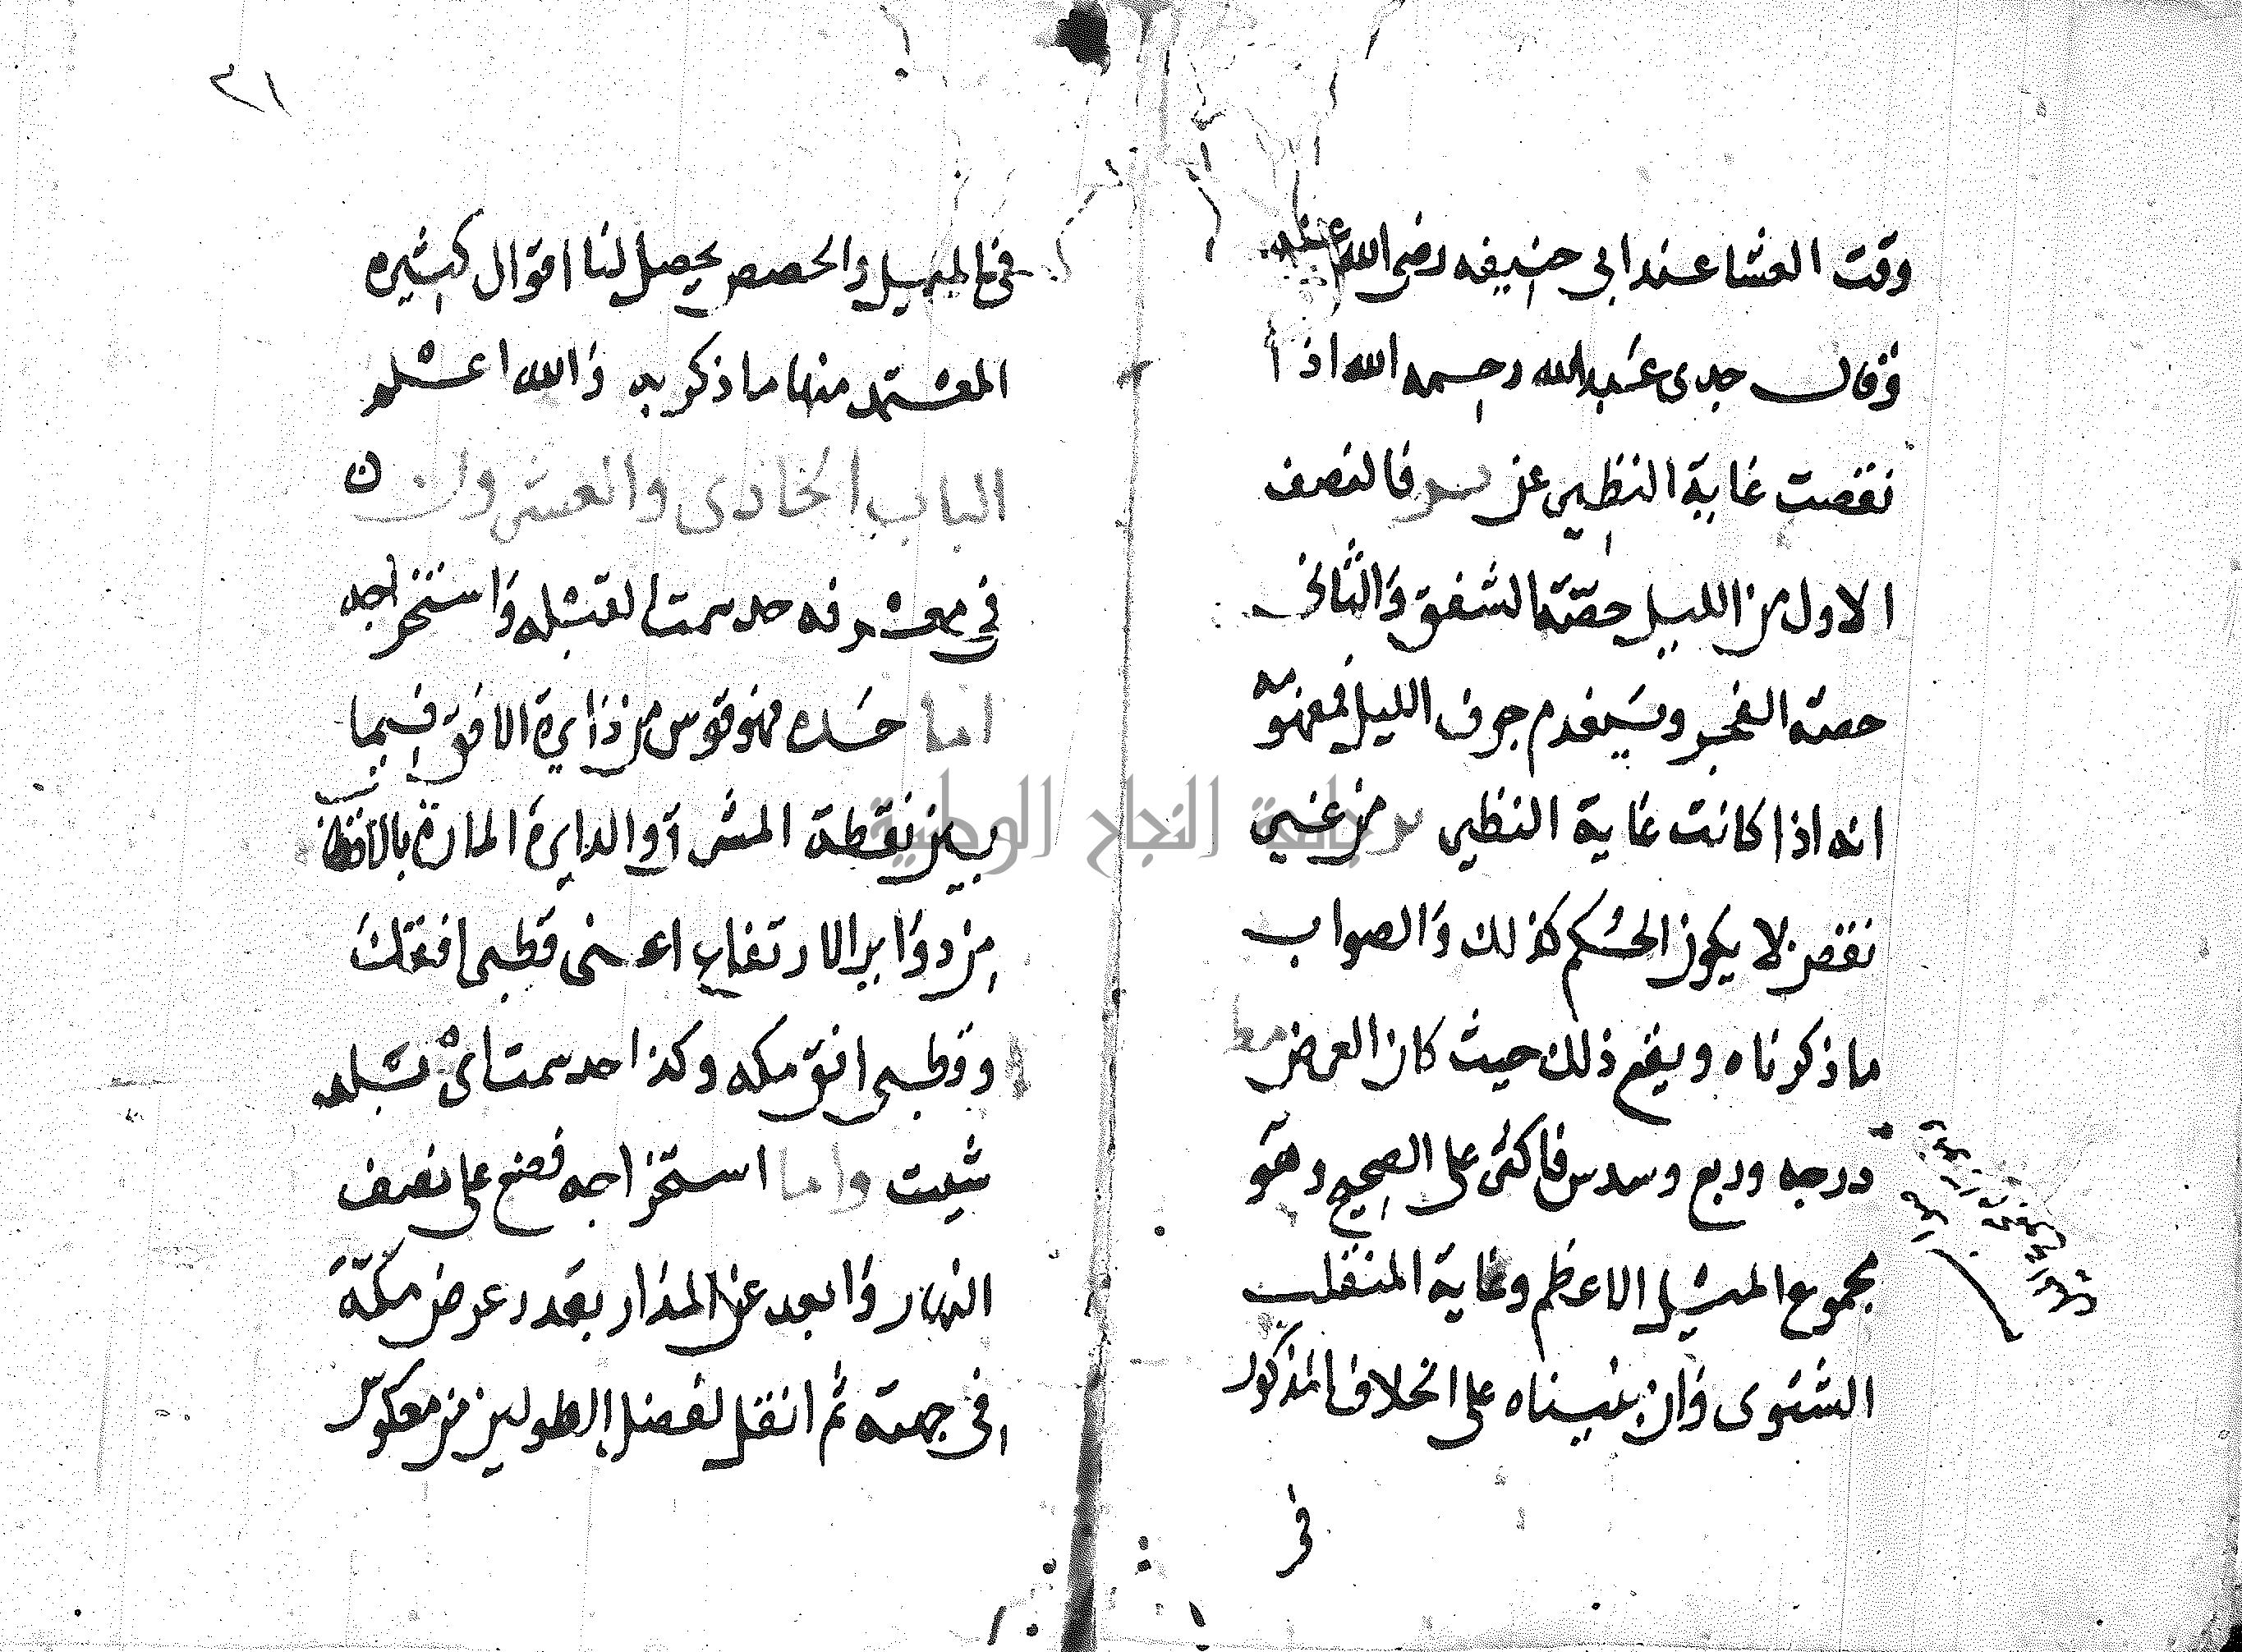 وقت العشا عند ابي حنيفه رضى الله عنه
وقال جدى عبد الله رحمه الله اذا
نقصت غاية النظير عن فالنصف
الاول من الليل حصة الشفق والثانى
حصة الفجر وينعدم جوف الليل فمفهومه
انه اذا كانت غاية النظير من غير
نقص لا يكون الحكم كذلك والصواب
ما ذكرناه ويقع ذلك حيث كان العرض مط
درجه وربع وسدس فاكثر على الصحيح وهو
مجموع الميل الاعظم وغاية المنقلب
الشتوى وان بنيناه على الخلاف المذكور
فى
٢١
فى الميل والحصص يحصل لنا اقوال كثيره
المعتمد منها ما ذكر به والله اعلم
الباب الحادى والعشرون
في معرفه حد سمت القبله واستخراجه
اما حده فهو قوس من دايرة الافق فيما
بين نقطة المشرق والدايرة المارة بالاقطاب
من دواير الارتفاع اعنى قطبى افقك
وقطبى افق مكه وكذا حد سمت اى بلد
شيت واما استخراجه فضع على نصف
النهار وابعد عن المدار بقدر عرض مكة
فى جهته ثم انقل لفضل الطولين من معكوس
جامعة النجاح الوطنية